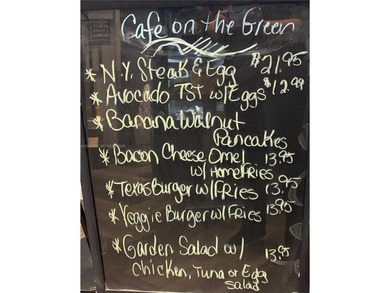 Cafe on the Green
* N.Y. Steak & Egg $21.95
* Avocado TST w/Eggs $12.99
* Banana Walnut
Pancakes
* Bacon Cheese Omel 13.95
w/ Homefries
* Texas Burger w/Fries 13.95
* Veggie Burger w/ Fries 13.95
* Garden Salad w/ 13.95
Chicken, Tuna or Egg
Salad